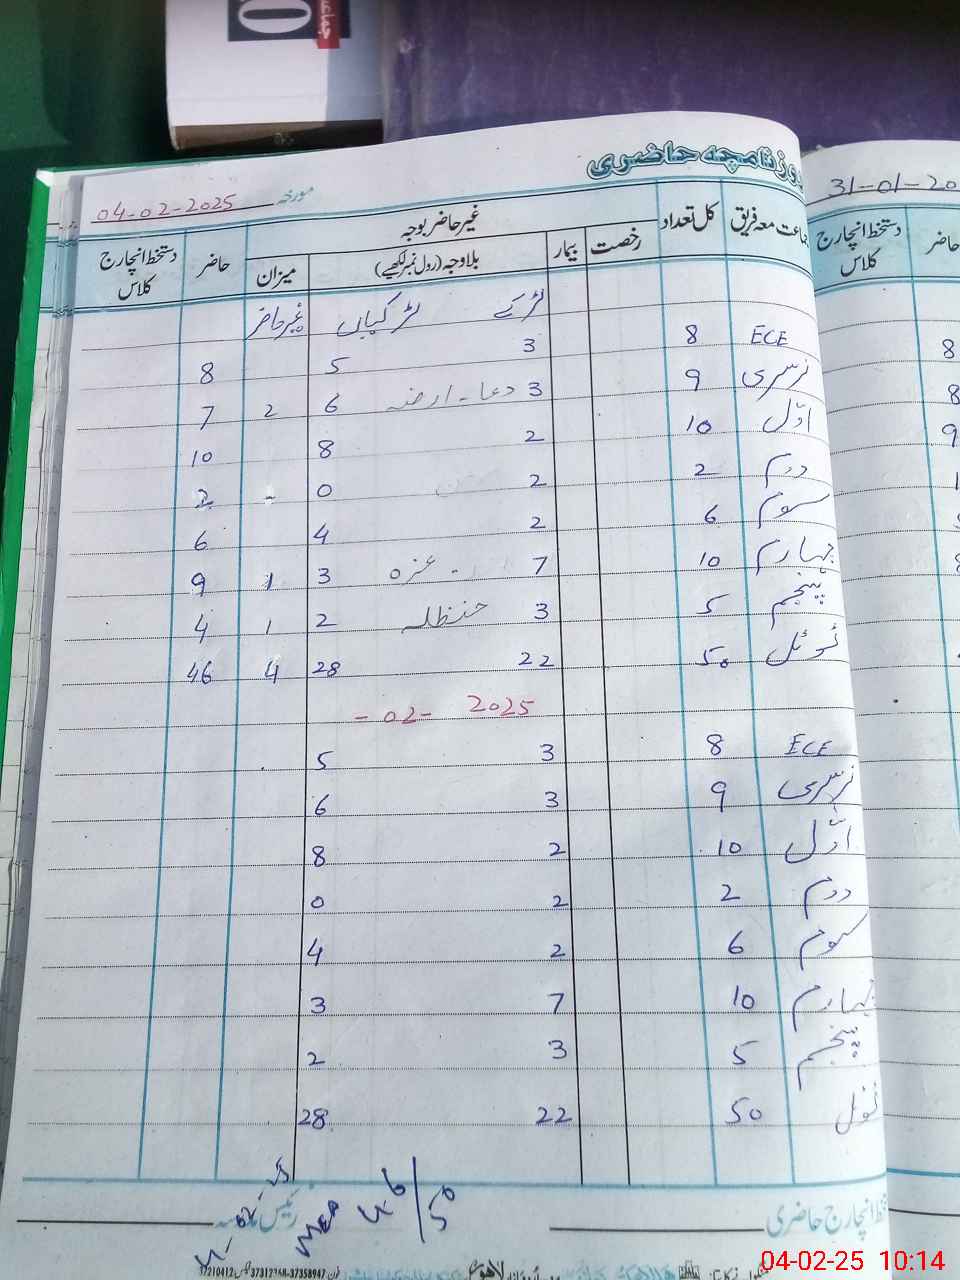 روزنامچہ حاضری
مورخہ 04-02-2025
31-01-20
جماعت معہ فریق کل تعداد غیر حاضر بوجہ حاضر دستخط انچارج کلاس
رخصت بیمار بلاوجہ (رول نمبر لکھیے) میزان
دستخط انچارج کلاس حاضر
لڑکے لڑکیاں غیر حاضر
ECE 8 3 5 8
نرسری 9 3 دعا - ارضہ 6 2 7
اوّل 10 2 8 10
دوم 2 2 0 - 2
سوم 6 2 4 6
چہارم 10 7 عزہ 3 1 9
پنجم 5 3 حنظلہ 2 1 4
ٹوٹل 50 22 28 4 46
- 02 - 2025
ECE 8 3 5
نرسری 9 3 6
اوّل 10 2 8
دوم 2 2 0
سوم 6 2 4
چہارم 10 7 3
پنجم 5 3 2
ٹوٹل 50 22 28
46/50
MEA
دستخط انچارج حاضری
37210412 37312368-37358947
04-02-25 10:14